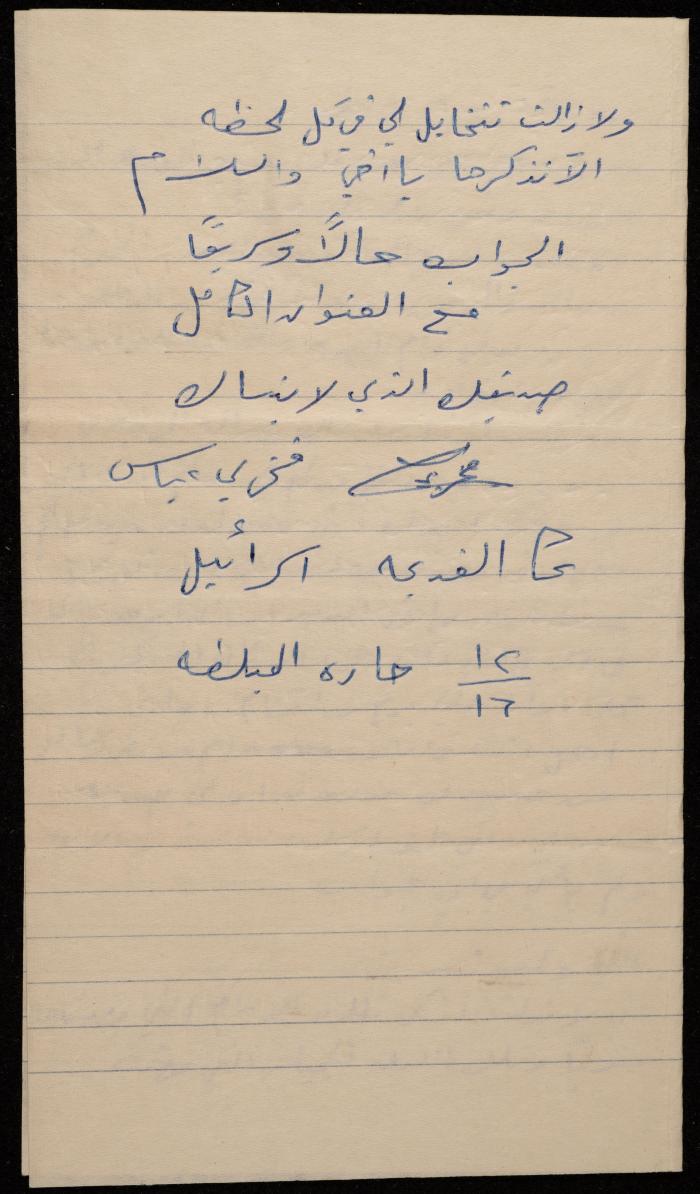 ولا زالت تتخايل لي في كل لحظه
الا تذكرها يا اخي والسلام
الجواب حالاً وسريعًا
مع العنوان الكامل
صديقك الذي لا ينساك
فخري عباس
عكا القديمه اسرائيل
١٢/١٦ حاره المبلطه